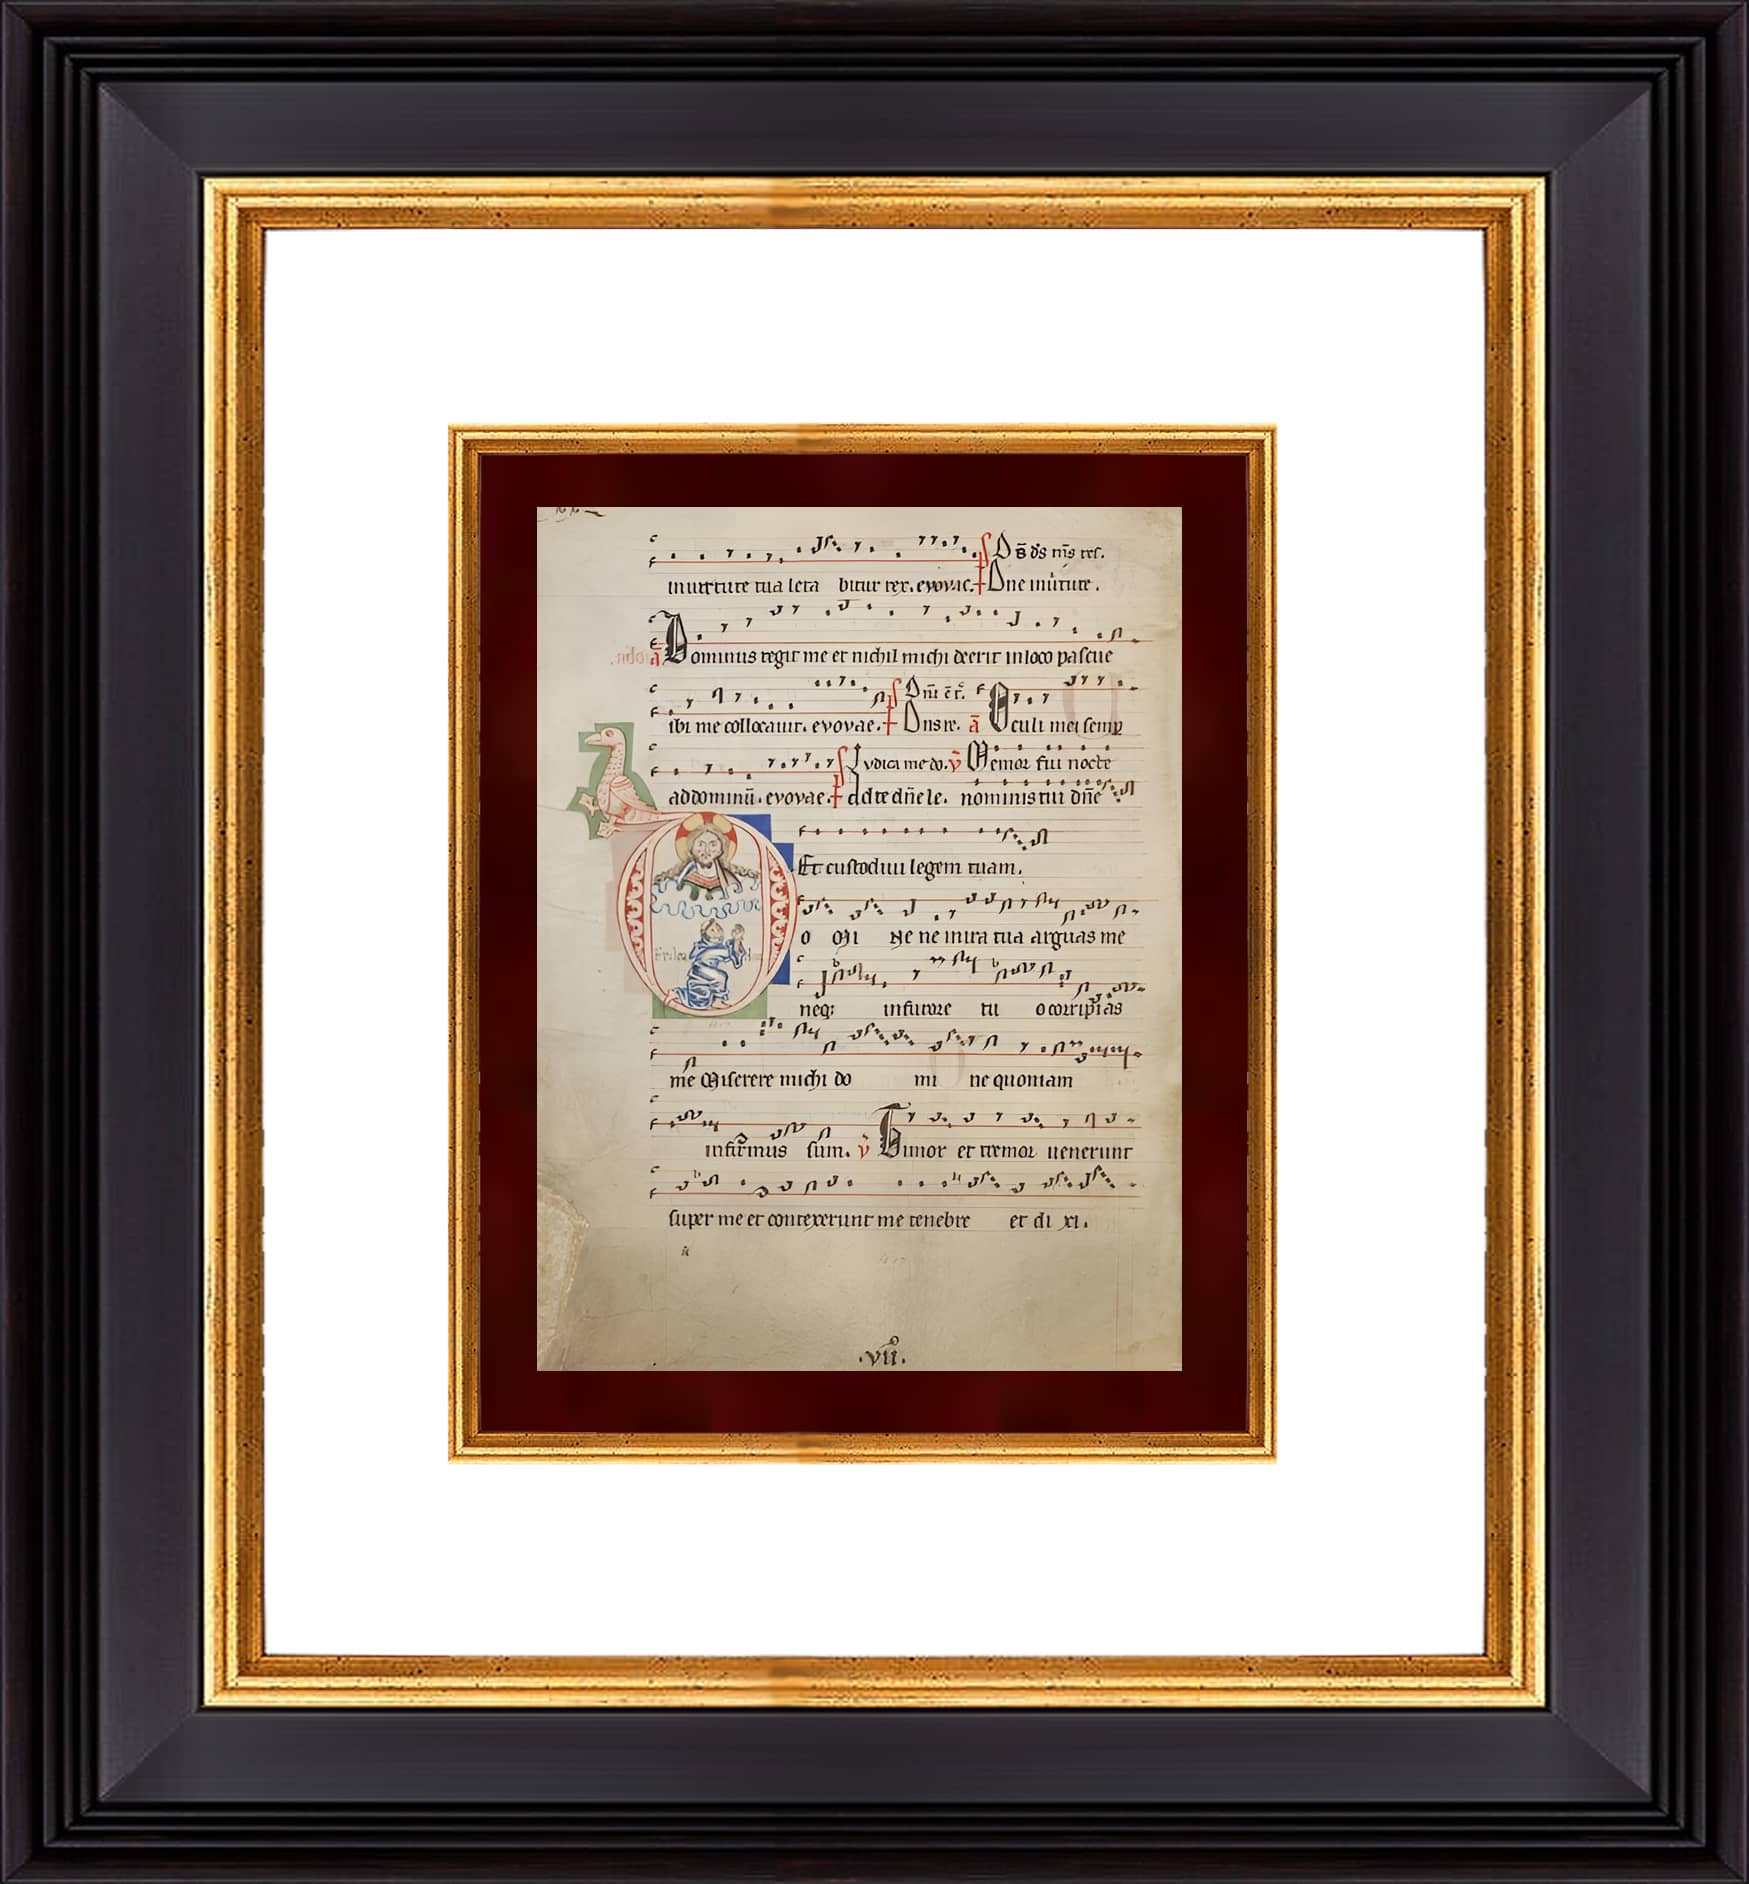 inuirtute tua leta bitur rex. evovae. Dne inuirtute.
Dominus regit me et nichil michi deerit inloco pascue
ibi me collocauit. evovae. Dns re. a Oculi mei semp
ad dominū. evovae. Iudica me do. v Memor fui nocte
Ad te dñe le. nominis tui dñe
Et custodiui legem tuam.
DO MI Ne ne inira tua arguas me
neq: infurore tu o corripias
me Miserere michi do mi ne quoniam
infirmus sum. v Timor et tremor uenerunt
super me et contexerunt me tenebre et di xi.
.vii.